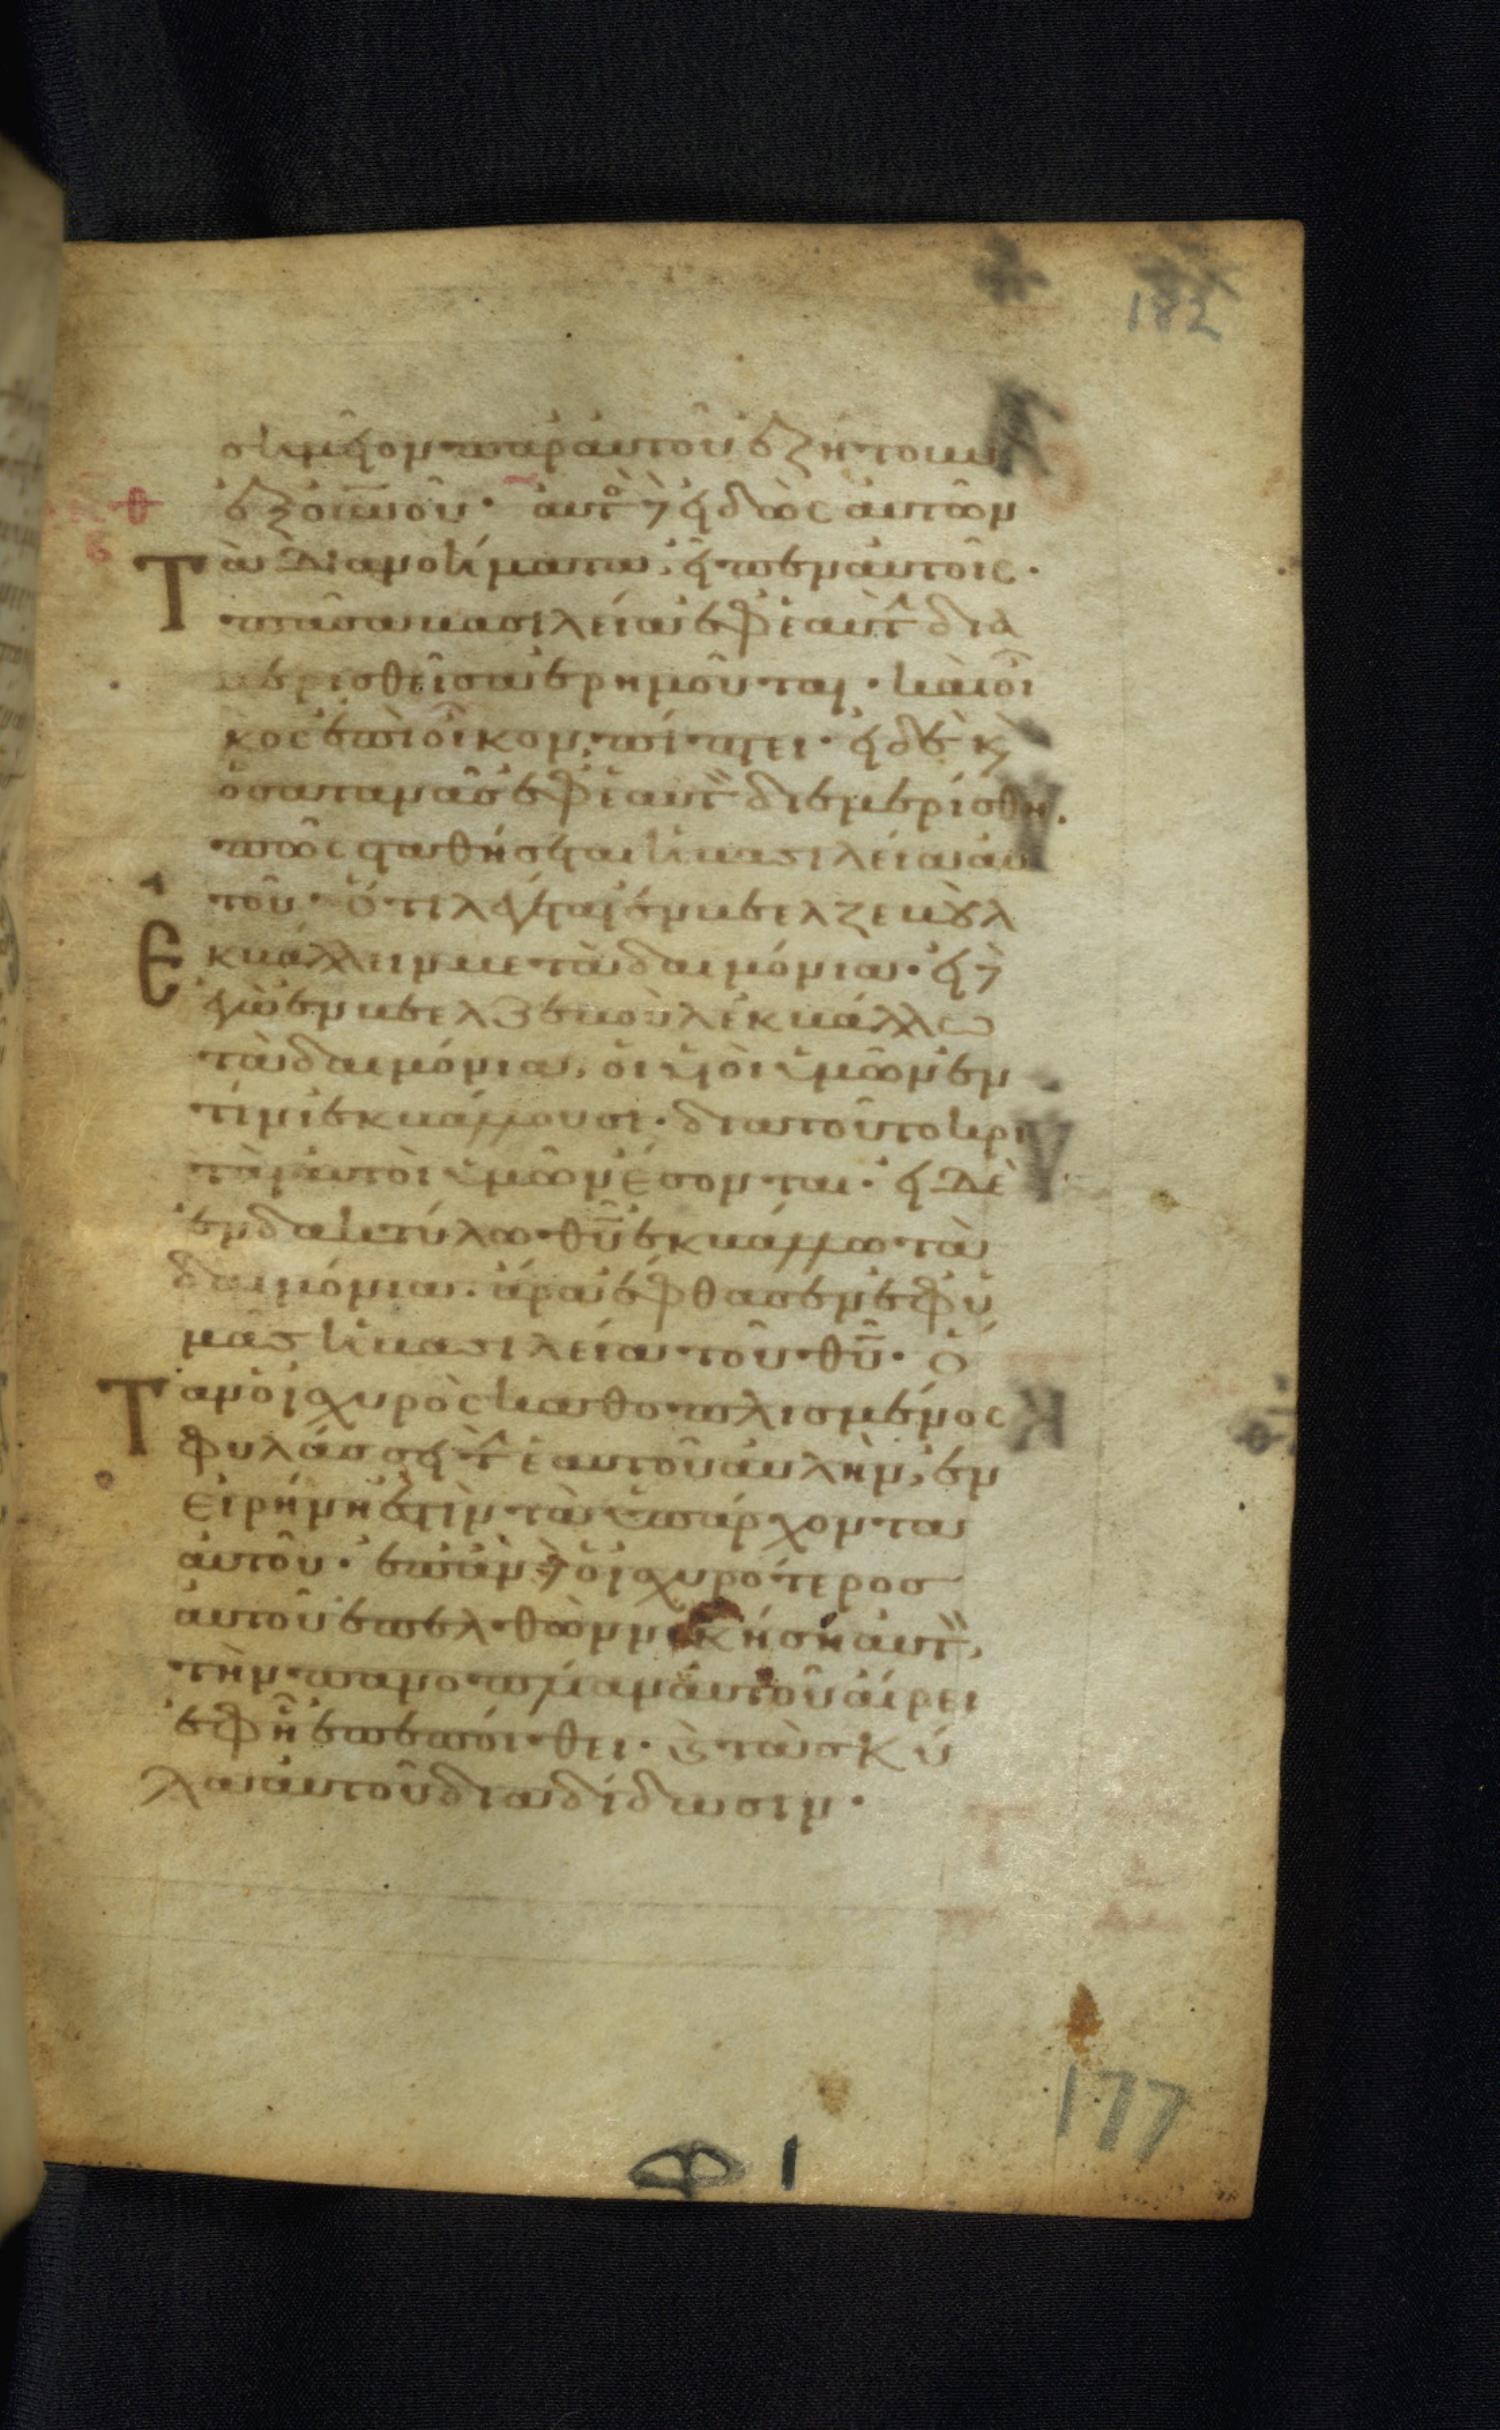 182
σημεῖον παρ αὐτοῦ ἐζήτουν
ἐξ οὐνοῦ· αὐτὸς δὲ εἰδὼς αὐτῶν
Τὰ διανοήματα, εἶπεν αὐτοῖς·
πᾶσα βασιλεία ἐφ ἑαυτὴν δια
μερισθεῖσα ἐρημοῦται· καὶ οἶ
κος ἐπὶ οἶκον, πίπτει· εἰ δὲ κ
ὁ σατανᾶς ἐφ ἑαυτὸν διεμερίσθη.
πῶς σταθήσεται ἡ βασιλεία αὐ
τοῦ· ὅτι λέγεται ἐν βεελζεβοὺλ
Ἐκβάλλειν με τὰ δαιμόνια· εἰ δὲ
ἐγὼ ἐν βεελζεβοὺλ ἐκβάλλω
τὰ δαιμόνια, οἱ υἱοὶ ὑμῶν ἐν
τίνι ἐκβάλλουσι· διατοῦτο κρι
ταὶ αὐτοὶ ὑμῶν ἔσονται· εἰ δὲ
ἐν δακτύλω θῦ ἐκβάλλω τὰ
δαιμόνια· ἄρα ἔφθασεν ἐφ ὑ
μᾶς ἡ βασιλεία τοῦ θῦ· Ὅ
Ταν ὁ ἰσχυρὸς καθοπλισμένος
φυλάσσει τὴν ἑαυτοῦ αὐλὴν, ἐν
εἰρήνη ἐστὶν τὰ ὑπάρχοντα
αὐτοῦ· ἐπὰν δὲ ὁ ἰσχυρότερος
αὐτοῦ ἐπελθὼν νικήση αὐτὸν,
τὴν πανοπλίαν αὐτοῦ αἴρει
ἐφ ἧ ἐπεποίθει· καὶ τὰ σκύ
λα αὐτοῦ διαδίδωσιν·
177